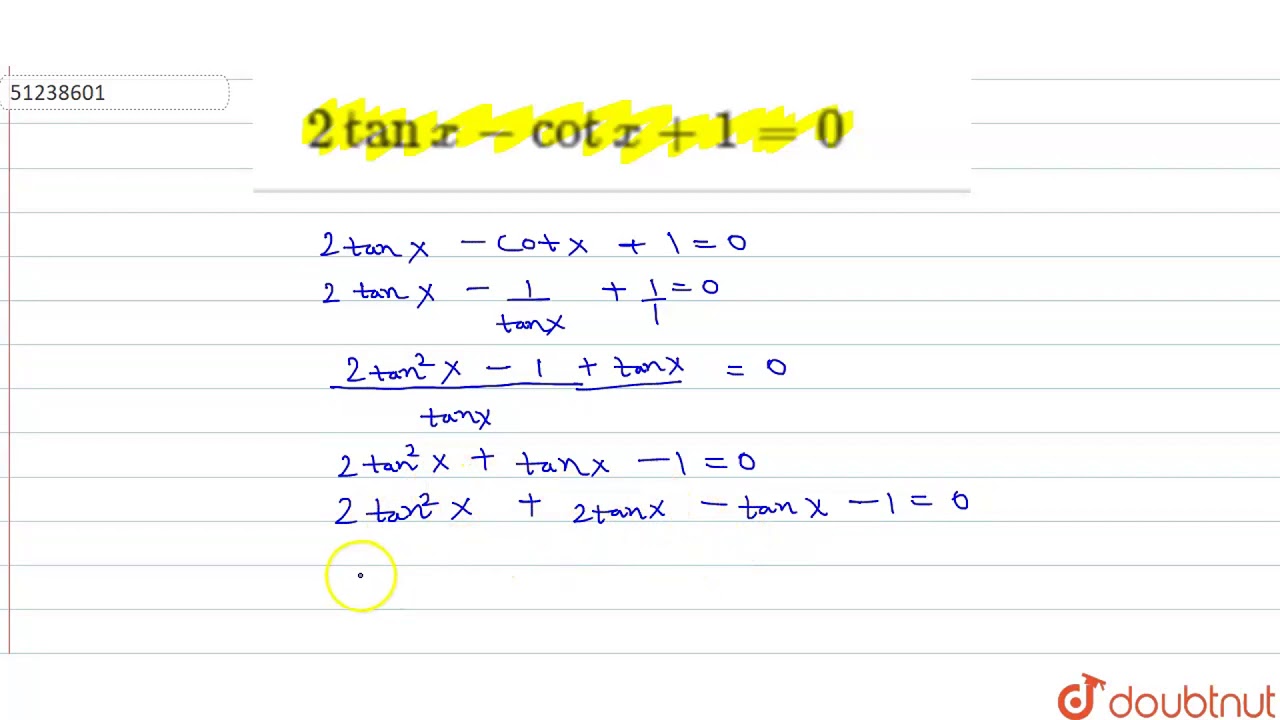 51238601
2 tan x − cot x + 1 = 0
2 tan x − cot x + 1 = 0
2 tan x − 1/tan x + 1/1 = 0
2 tan² x − 1 + tan x = 0
tan x
2 tan² x + tan x − 1 = 0
2 tan² x + 2 tan x − tan x − 1 = 0
doubtnut